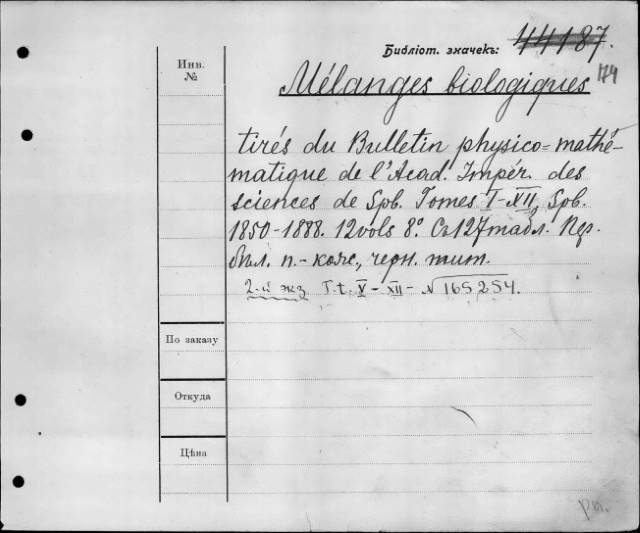 Библіот. значекъ: 44187.
Инв.
№
174
Mélanges biologiques
tirés du Bulletin physico=mathé-
matique de l'Acad. Impér. des
sciences de Spb. Tomes I-XII, Spb.
1850-1888. 12 vols 8º. Съ 127 табл. Пер.
бѣл. п.-кож., черн. тит.
2-й экз T.t. V - XII - № 165254.
По заказу
Откуда
Цѣна